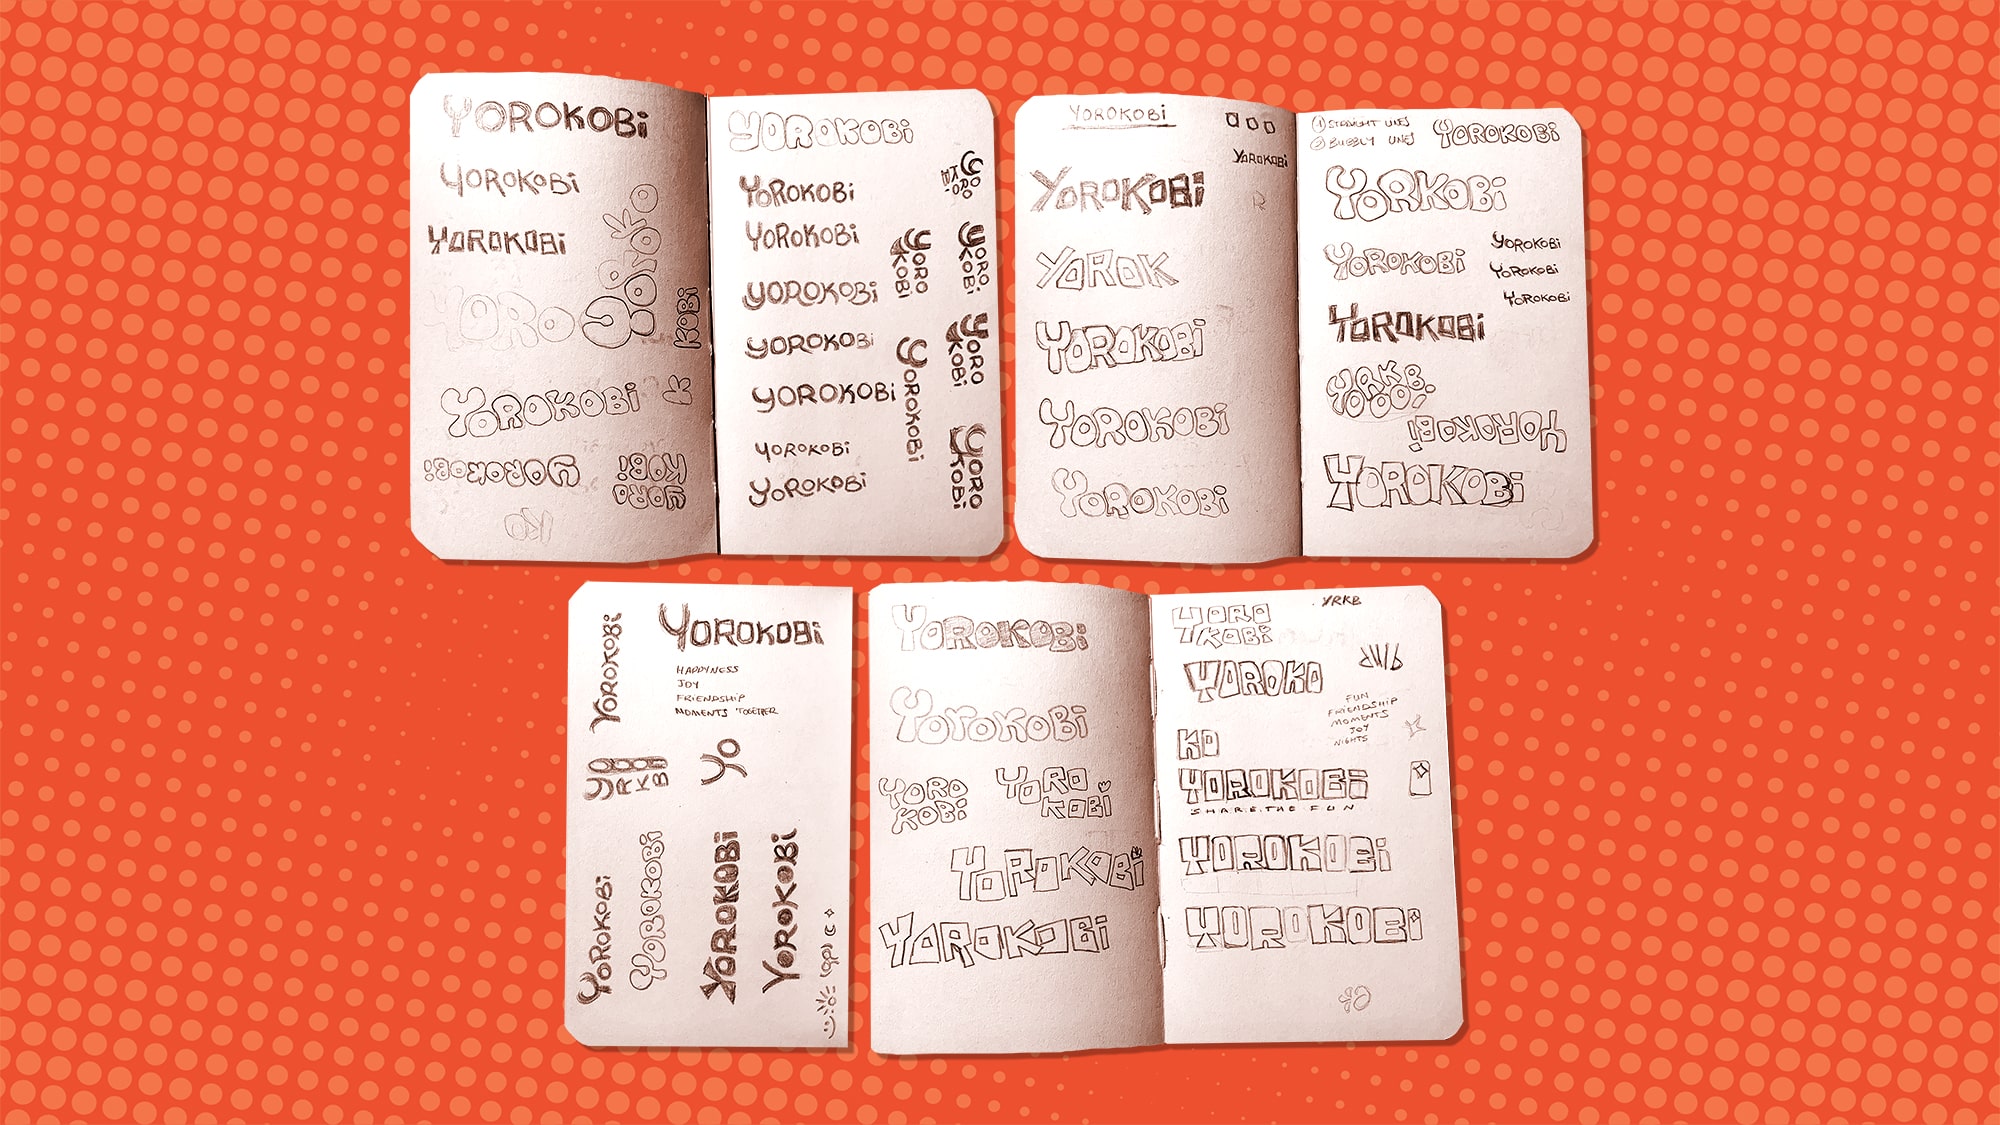 YOROKOBi
YOROKOBi
YOROKOBi
YORO
YOROKO
KOBI
YOROKOBi
YOROKOBi
YORO
KOBi
YOROKOBi
YORO
YOROKOBi
YOROKOBi
YOROKOBi
YOROKOBi
YOROKOBi
YOROKOBi
YOROKOBi
YORO
KOBi
YORO
KOBi
YORO
KOBi
YOROKOBi
YORO
KOBi
YOROKOBi
YOROKOBi
YOROKOBi
YOROK
YOROKOBi
YOROKOBi
YOROKOBi
R
① STRAIGHT LINES
② BUBBLY LINES
YOROKOBi
YORKOBi
YOROKOBi
YOROKOBi
YOROKOBi
YOROKOBi
YOROKOBi
YOROKOBi
YOROKOBi
YOROKOBi
YOROKOBi
HAPPYNESS
JOY
FRIENDSHIP
MOMENTS TOGETHER
YO
RKB
YO
YOROKOBi
YOROKOBi
YOROKOBi
YOROKOBi
YOROKOBi
YOROKOBi
YORO
KOBi
YORO
KOBi
YOROKOBi
YOROKOBi
YORO
KOBi
YRKB
YOROKO
FUN
FRIENDSHIP
MOMENTS
JOY
NIGHTS
KO
YOROKOBi
SHARE.THE FUN
YOROKOBi
YOROKOBi